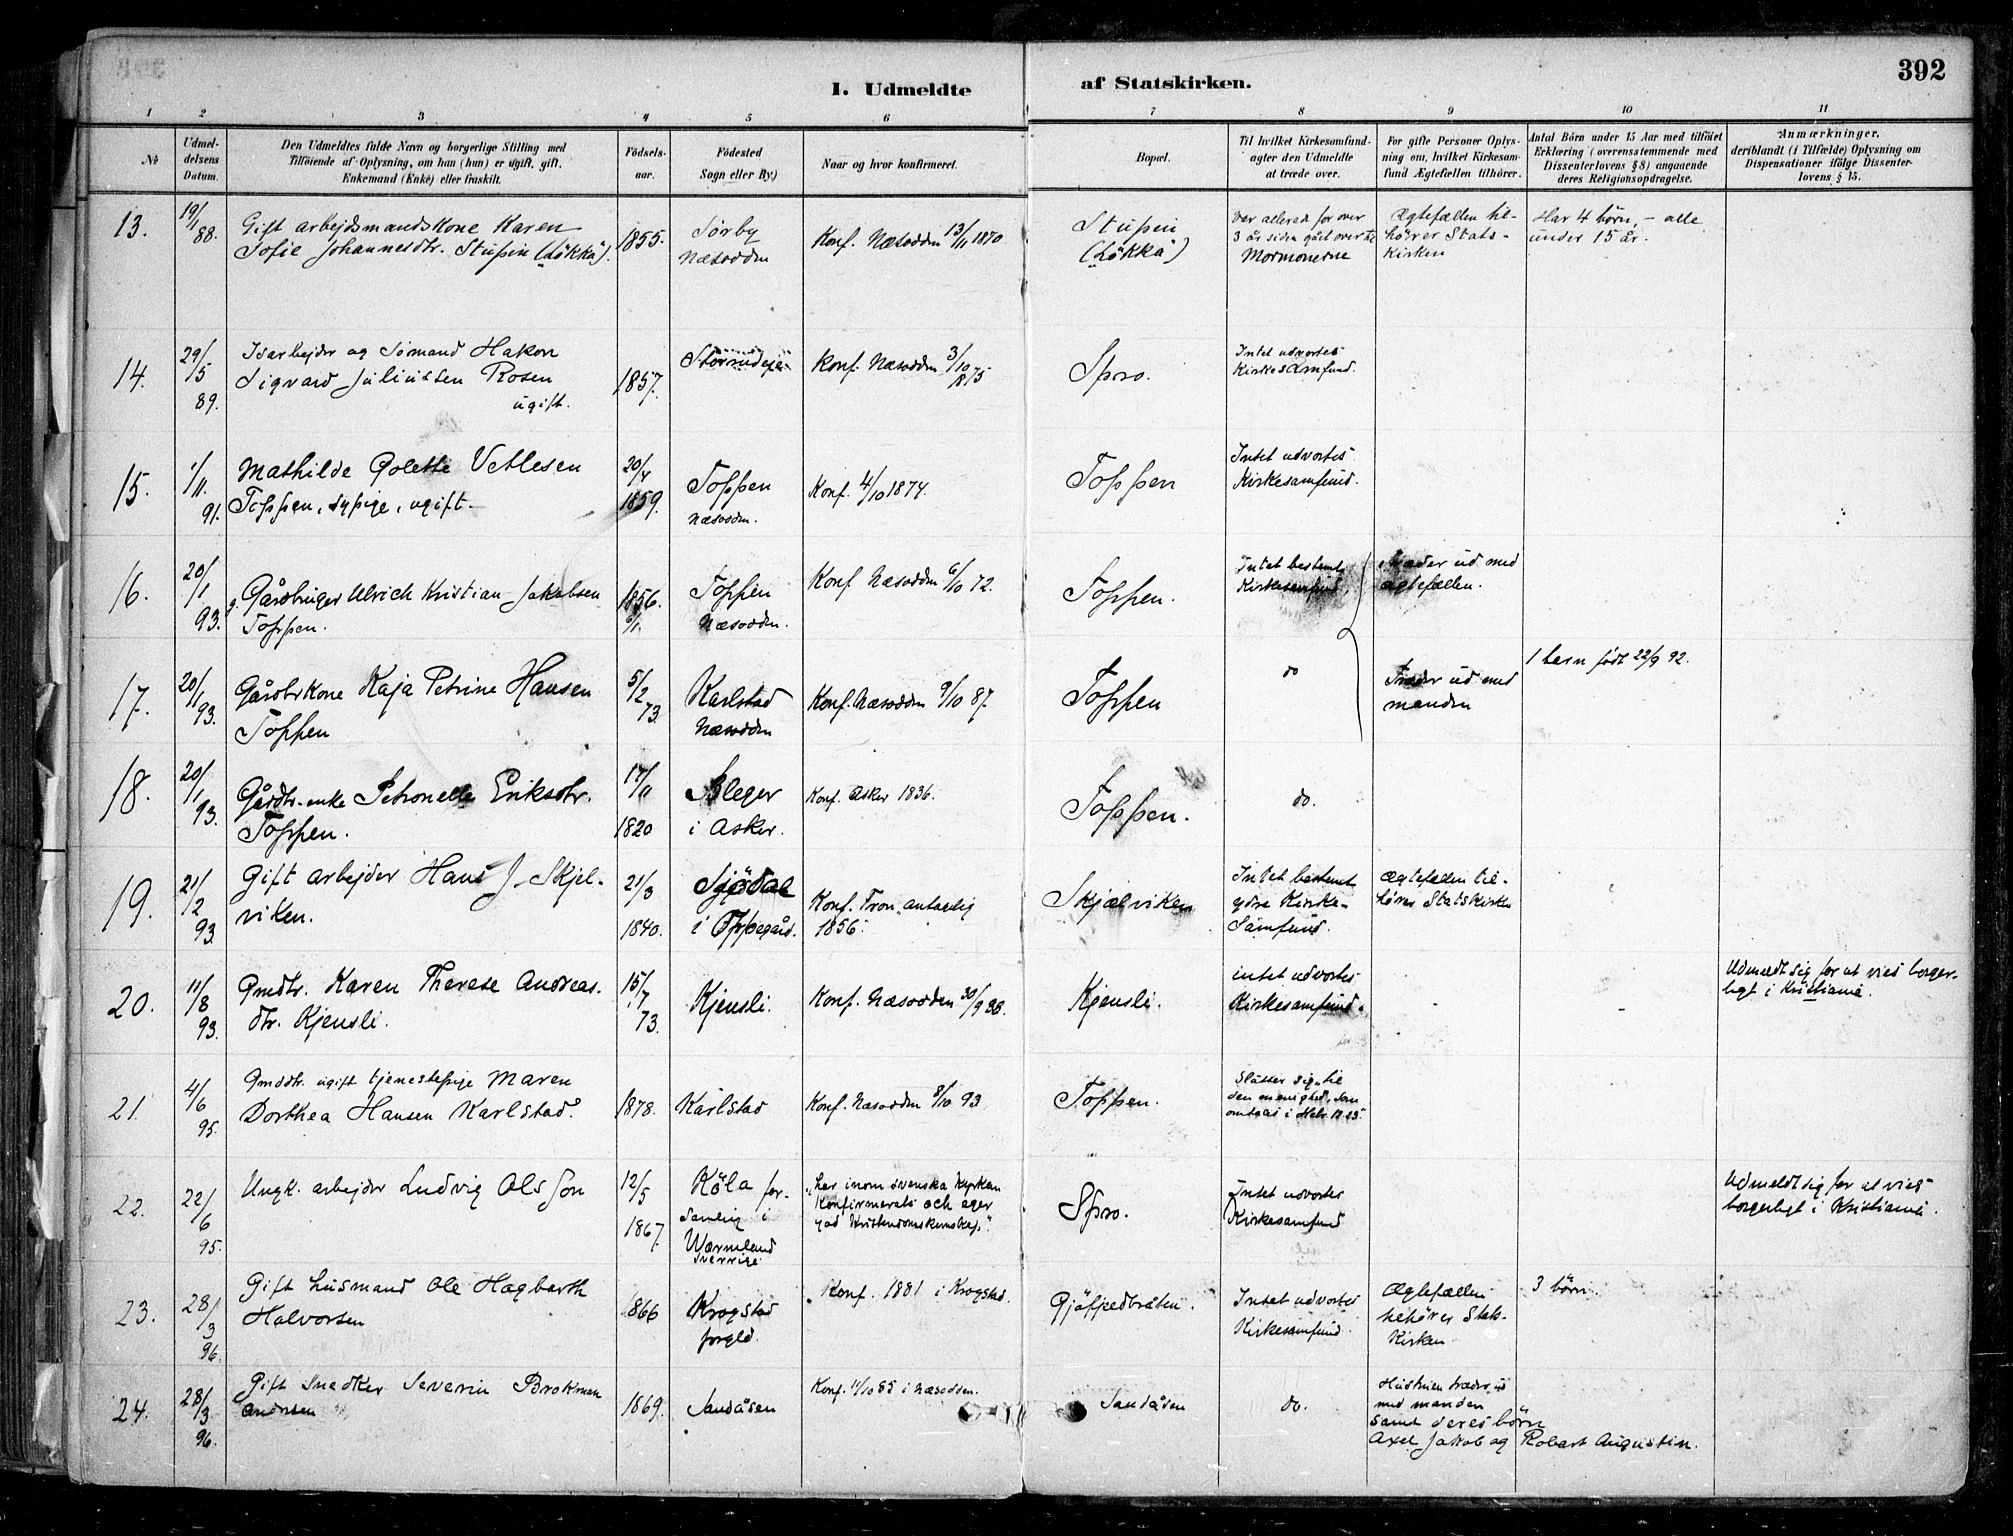 392
I. Udmeldte af Statskirken.
1 2 3 4 5 6 7 8 9 10 11
№
Udmel-
delsens
Datum.
Den Udmeldtes fulde Navn og borgerlige Stilling med
Tilföiende af Oplysning, om han (hun) er ugift, gift,
Enkemand (Enke) eller fraskilt.
Födsels-
aar.
Födested
Sogn eller By.)
Naar og hvor konfirmeret.
Bopæl.
Til hvilket Kirkesamfund
agter den Udmeldte
at træde over.
For gifte Personer Oplys-
ning om, hvilket Kirkesam-
fund Ægtefællen tilhörer.
Antal Börn under 15 Aar med tilföiet
Erklæring (overensstemmende med
Dissenterlovens § 8) angaaende
deres Religionsopdragelse.
Anmærkninger,
deriblandt (i Tilfælde) Oplysning om
Dispensationer ifölge Dissenter-
lovens § 15.
13.
19/1
88.
Gift arbejdsmandskone Karen
Sofie Johannesdtr. Stuþin (Løkka).
1855.
Sørby
Næsodden
Konf. Næsodden 13/11 1870.
Stuþin
("Løkka")
Var allerede for over
3 år siden gået over til
Mormonerne
Ægtefællen til-
hører Stats-
kirken
Har 4 børn, – alle
under 15 år.
14.
29/5
89.
Isarbejder og Sømand Hakon
Sigvard Juliussen Rosen
ugift.
1857.
Konf. Næsodden 3/10
1875
Spro.
Intet udvortes
Kirkesamfund.
15.
1/11.
91.
Mathilde Golette Vetlesen
Toppen, sypige, ugift.
20/4
1859.
Toppen
Næsodden.
Konf. 4/10 1874.
Toppen
Intet udvortes
Kirkesamfund.
16.
20/1
93.
g. Gårdbruger Ulrich Kristian Jakobsen
Toppen.
1856.
6/1.
Toppen
Næsodden.
Konf Næsodden 6/10 72.
Toppen.
Intet bestemt
Kirkesamfund
Træder ud med
ægtefællen.
17.
20/1
93.
Gårdbrkone Kaja Petrine Hansen
Toppen
5/2
73.
Karlstad
Næsodden
Konf. Næsodden 9/10 87.
Toppen
do
Træder ud med
manden
1 barn født 22/9 92.
18.
20/1
93.
Gårdbr.-enke Petronelle Eriksdtr.
Toppen.
17/11
1820
Bleger
i Asker.
Konf. Asker 1836.
Toppen.
do.
19.
21/2
93.
Gift arbejder Hans J. Skjel-
viken.
21/3
1840.
Sjødal
i Oppegård.
Konf. Fron, antagelig
1856.
Skjælviken
Intet bestemt
ydre Kirke-
Samfund.
Ægtefællen til-
hører Statskirken
20.
11/8
93.
Gmdtr. Karen Therese Andreas-
dtr. Kjensli.
15/7
73.
Kjensli.
Konf. Næsodden 30/9 88.
Kjensli.
intet udvortes
Kirkesamfund.
Udmeldt sig for at vies borger-
ligt i Kristiania.
21.
4/6
95.
Gmddtr. ugift tjenestepige Maren
Dorthea Hansen Karlstad.
1878.
Karlstad
Konf. Næsodden 8/10 93
Toppen.
Slutter sig til
den menighed, som
omtales i Hebr. 12.23.
22.
22/6
95.
Ungk. arbejder Ludvig Olsson
12/5
1867.
Köla för-
samling i
Wärmland
Sverrige
"har inom svenska kyrkan
Konfirmerats och eger
god Kristendomskunskap."
Spro.
Intet udvortes
Kirkesamfund
Udmeldt sig for at vies
borgerligt i Kristiania.
23.
28/3
96.
Gift husmand Ole Hagbarth
Halvorsen
1866
Krogstad
prgld.
Konf. 1881 i Krogstad.
Gjøfjeldbråten.
Intet udvortes
Kirkesamfund.
Ægtefællen
tilhører Stats-
Kirken
3 børn.
24.
28/3
96.
Gift Snedker Severin Brokman
Andersen
1869.
Sandåsen
Konf. 11/10 85 i Næsodden.
Sandåsen
do.
Hustruen træder ud
med manden
samt deres børn
Axel Jakob og Robert Augustin.